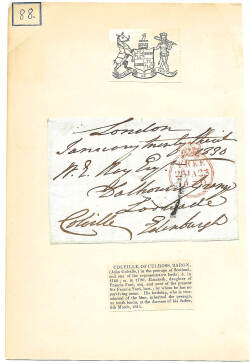 88.
London
January twenty third
1830
FREE
W. E.
Esq
Colville
Edinburgh
COLVILLE, OF CULROSS, BARON,
(John Colville,) in the peerage of Scotland,
and one of the representative lords; b. in
1768; m. in 1790, Elizabeth, daughter of
Francis Ford, esq. and aunt of the present
Sir Francis Ford, bart., by whom he has no
surviving issue. His lordship, who is vice-
admiral of the blue, inherited the peerage,
as tenth baron, at the decease of his father,
8th March, 1811.